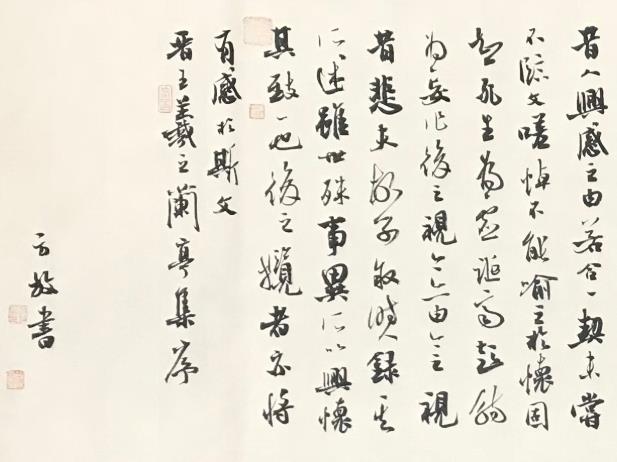 昔人興感之由若合一契未嘗
不臨文嗟悼不能喻之於懷固
知死生為虛誕齊彭殤
為妄作後之視今亦由今之視
昔悲夫故列敘時人錄其
所述雖世殊事異所以興懷
其致一也後之攬者亦將
有感於斯文
晉王羲之蘭亭集序
方放書